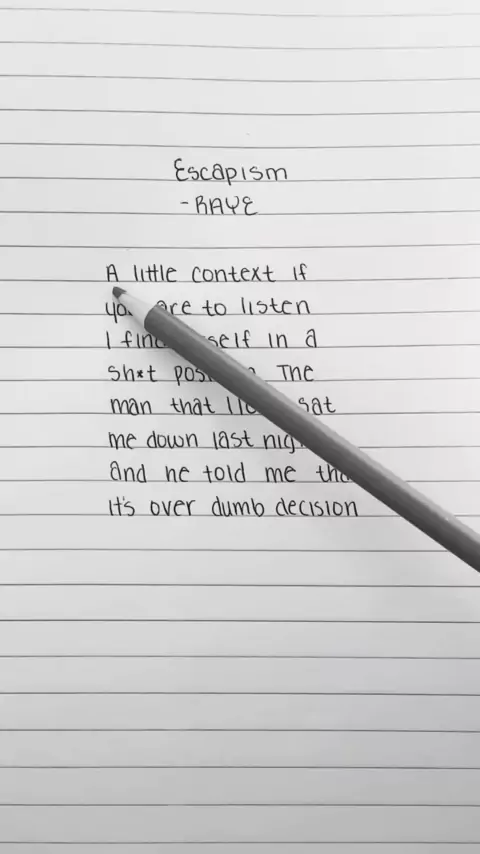 Escapism
- RAYE
A little context if
are to listen
I self in a
sh*t The
man that sat
me down last
and he told me
it's over dumb decision